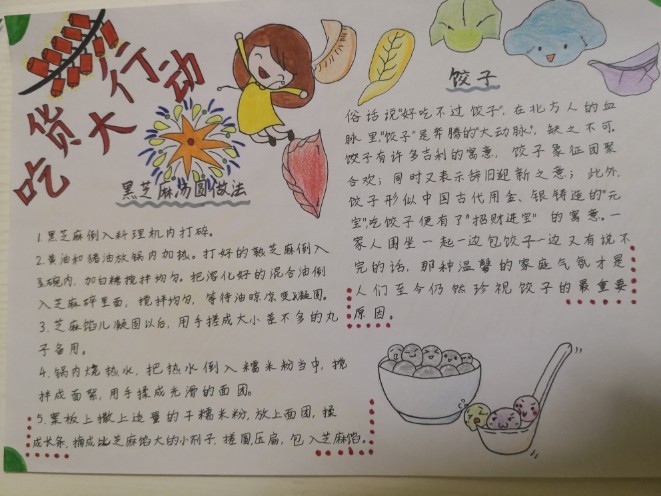 吃货大行动
黑芝麻汤圆做法
1.黑芝麻倒入料理机内打碎。
2.黄油和猪油放锅内加热。打好的熟芝麻倒入
碗内,加白糖搅拌均匀。把溶化好的混合油倒
入芝麻碎里面,搅拌均匀,等待油晾凉凝固。
3.芝麻馅儿凝固以后,用手搓成大小差不多的丸
子备用。
4.锅内烧热水,把热水倒入糯米粉当中,搅
拌成面絮,用手揉成光滑的面团。
5.案板上撒上适量的干糯米粉,放上面团,揉
成长条,揪成比芝麻馅大的小剂子,搓圆,压扁,包入芝麻馅。
饺子
俗话说"好吃不过饺子",在北方人的血
脉里,"饺子"是奔腾的"大动脉",缺之不可。
饺子有许多吉利的寓意,饺子象征团聚
合欢;同时又表示辞旧迎新之意;此外,
饺子形似中国古代用金、银铸造的"元
宝",吃饺子便有了"招财进宝"的寓意。一
家人围坐一起一边包饺子一边又有说不
完的话,那种温馨的家庭气氛才是
人们至今仍然珍视饺子的最重要
原因。